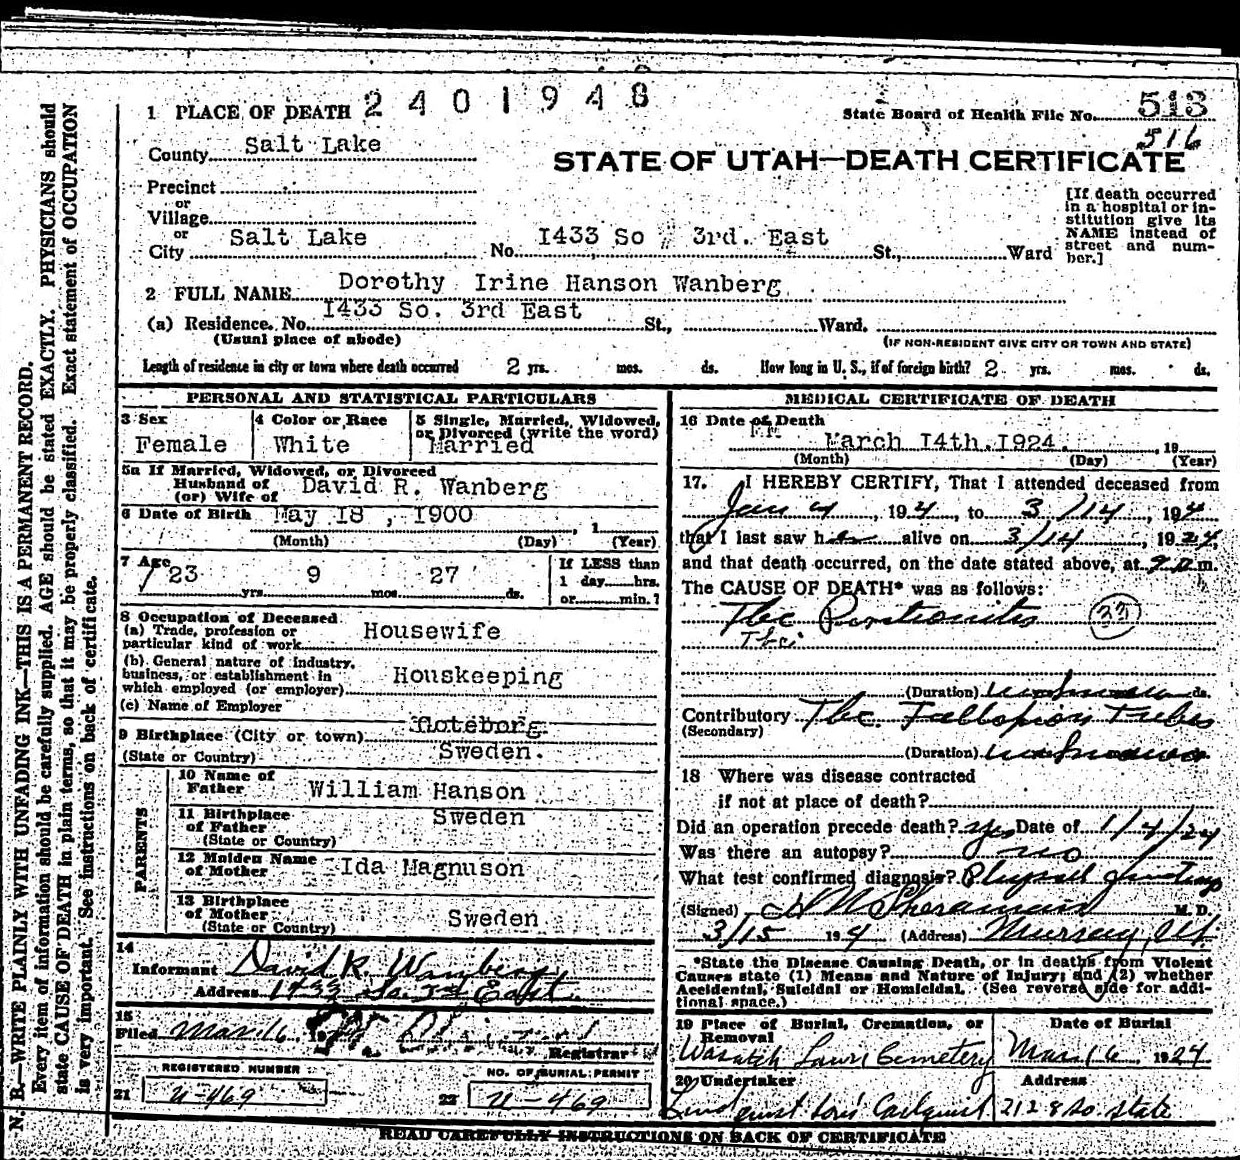 N. B.—WRITE PLAINLY WITH UNFADING INK—THIS IS A PERMANENT RECORD.
Every item of information should be carefully supplied. AGE should be stated EXACTLY. PHYSICIANS should
state CAUSE OF DEATH in plain terms, so that it may be properly classified. Exact statement of OCCUPATION
is very important. See instructions on back of certificate.
1 PLACE OF DEATH 2401948
State Board of Health File No. 513
516
County Salt Lake
STATE OF UTAH—DEATH CERTIFICATE
Precinct
or
Village
or
City Salt Lake No. I433 So 3rd. East St., Ward
[If death occurred
in a hospital or in-
stitution give its
NAME instead of
street and num-
ber.]
2 FULL NAME Dorothy Irine Hanson Wanberg
(a) Residence. No. I433 So. 3rd East St., Ward.
(Usual place of abode) (IF NON-RESIDENT GIVE CITY OR TOWN AND STATE)
Length of residence in city or town where death occurred 2 yrs. mos. ds. How long in U. S., if of foreign birth? 2 yrs. mos. ds.
PERSONAL AND STATISTICAL PARTICULARS
3 Sex
Female
4 Color or Race
White
5 Single, Married, Widowed,
or Divorced (write the word)
Married
5a If Married, Widowed, or Divorced
Husband of
(or) Wife of David R. Wanberg
6 Date of Birth May I8 , I900 , 1
(Month) (Day) (Year)
7 Age 23 yrs. 9 mos. 27 ds.
If LESS than
1 day hrs.
or min.?
8 Occupation of Deceased
(a) Trade, profession or
particular kind of work Housewife
(b) General nature of industry,
business, or establishment in
which employed (or employer) Houskeeping
(c) Name of Employer
9 Birthplace (City or town) Goteborg.
(State or Country) Sweden.
PARENTS
10 Name of
Father William Hanson
11 Birthplace
of Father Sweden
(State or Country)
12 Maiden Name
of Mother Ida Magnuson
13 Birthplace
of Mother Sweden
(State or Country)
14
Informant David R. Wanberg
Address 1433 So. 3rd East
15
Filed Mar. 16 19
Registrar
REGISTERED NUMBER
21 U-469
NO. OF BURIAL PERMIT
22 U-469
MEDICAL CERTIFICATE OF DEATH
16 Date of Death
March I4th. I924. , 19
(Month) (Day) (Year)
17. I HEREBY CERTIFY, That I attended deceased from
Jan 4, 1924, to 3/14, 1924
that I last saw her alive on 3/14, 1924,
and that death occurred, on the date stated above, at m.
The CAUSE OF DEATH* was as follows:
Tbc Peritonitis 33
Tbc
(Duration) unknown ds.
Contributory Tbc. Fallopian Tubes
(Secondary)
(Duration) unknown
18 Where was disease contracted
if not at place of death?
Did an operation precede death? yes Date of 1/4/24
Was there an autopsy? no
What test confirmed diagnosis? Physical findings
(Signed) M. D.
3/15 1924 (Address) Murray, Ut
*State the Disease Causing Death, or in deaths from Violent
Causes state (1) Means and Nature of Injury; and (2) whether
Accidental, Suicidal or Homicidal. (See reverse side for addi-
tional space.)
19 Place of Burial, Cremation, or
Removal
Wasatch Lawn Cemetery
Date of Burial
Mar 16 1924
20 Undertaker Address
2128 So. State
READ CAREFULLY INSTRUCTIONS ON BACK OF CERTIFICATE